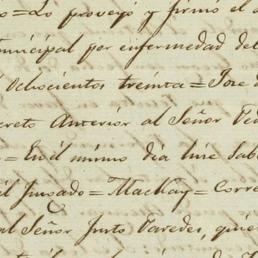 o = Lo proveyó y firmó el s
municipal por enfermedad del
Ochocientos treinta = Jose d
creto Anterior al Señor Fed
o = En il mimo dia hise Sab
il Jusgado = MacKay = Corre
al Señor Justo Paredes, quie